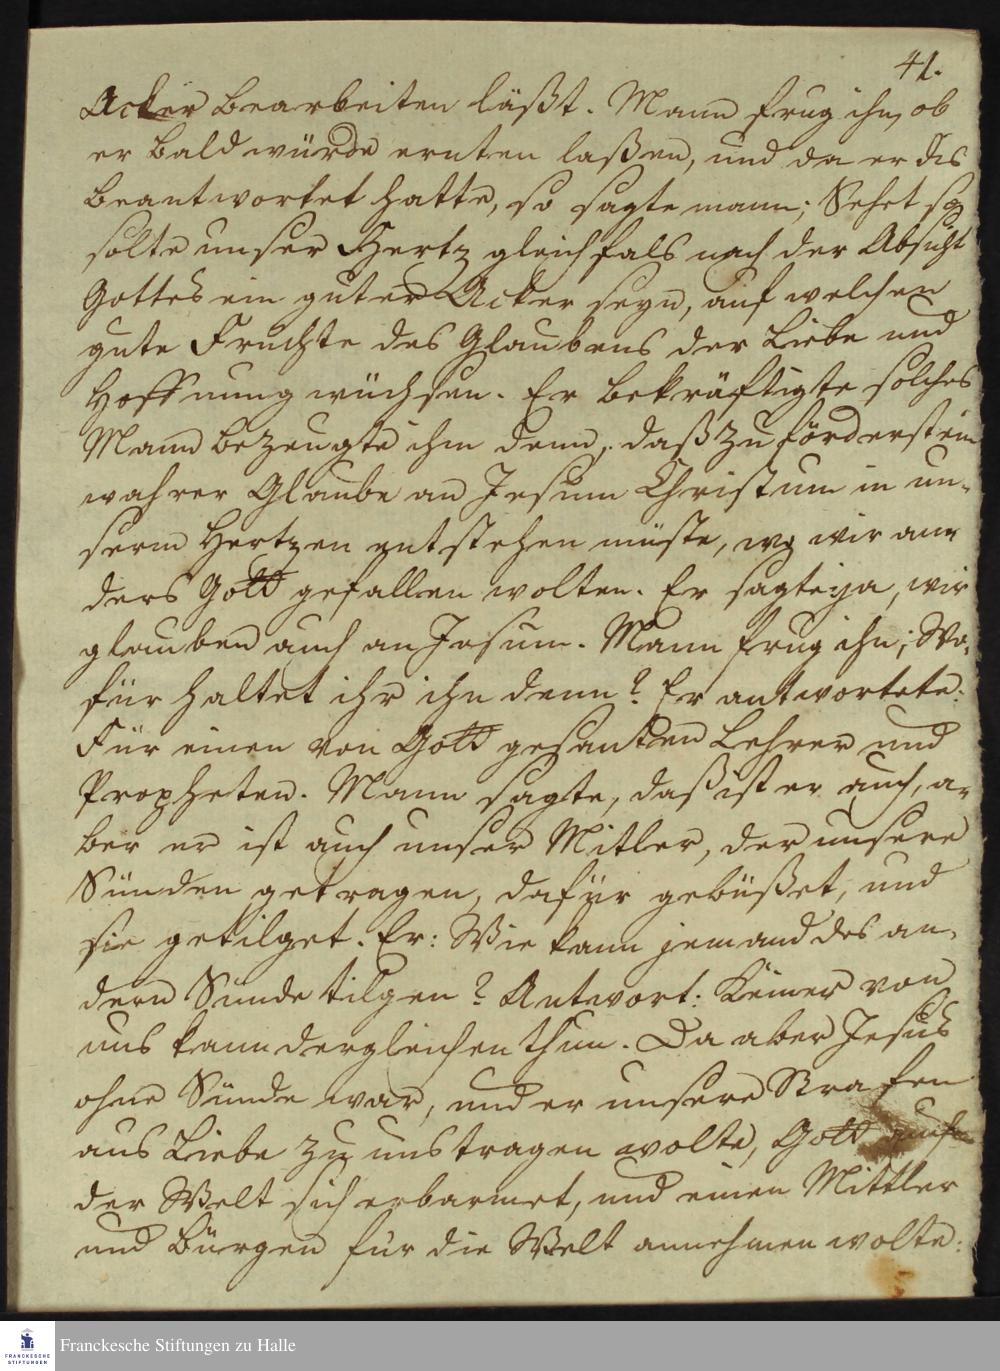 41.
Acker bearbeiten läßt. Mann frug ihn, ob
er bald würde ernten laßen, und da er dis
beantwortet hatte, so sagte mann; Sehet so
solte unser Hertz gleichfals nach der Absicht
Gottes ein guter Acker seyn, auf welchen
gute Früchte des Glaubens der Liebe und
Hoffnung wüchsen. Er bekräftigte solches
Mann bezeugte ihm denn, daß zu förderst ein
wahrer Glaube an Jesum Christum in un-
serm Hertzen entstehen müste, wo wir an-
ders Gott gefallen wolten. Er sagte ja, wir
glauben auch an Jesum. Mann frug ihn; Wo-
für haltet ihr ihn denn? Er antwortete:
Für einen von Gott gesanten Lehrer und
Propheten. Mann sagte, daß ist er auch, a-
ber er ist auch unser Mitler, der unsere
Sünden getragen, dafür gebüßet, und
sie getilget. Er: Wie kann jemand des an-
dern Sünde tilgen? Antwort: Keiner von
uns kann dergleichen thun. Da aber Jesus
ohne Sünde war, und er unsere Strafen
aus Liebe zu uns tragen wolte, Gott auch
der Welt sich erbarmet, und einen Mittler
und Bürgen für die Welt annehmen wolte:
FRANCKESCHE
STIFTUNGEN
Franckesche Stiftungen zu Halle